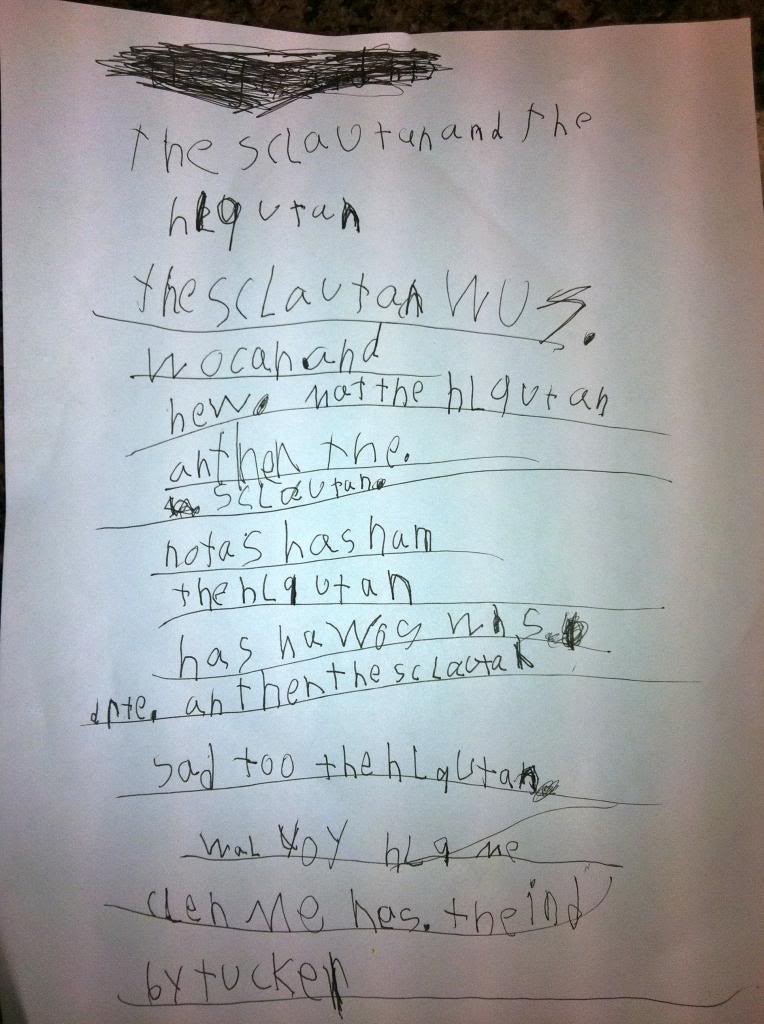 the sclautan and the
hlqutan
the sclautan wus.
wocan and
hew. nat the hlqutan
anthen the.
sclautan.
notas has ham
the hlqutan
has hawos whs
drte. an then the sclautan
sad too the hlqutan
wal yoy hlq me
clen me has. the ind
by tucker